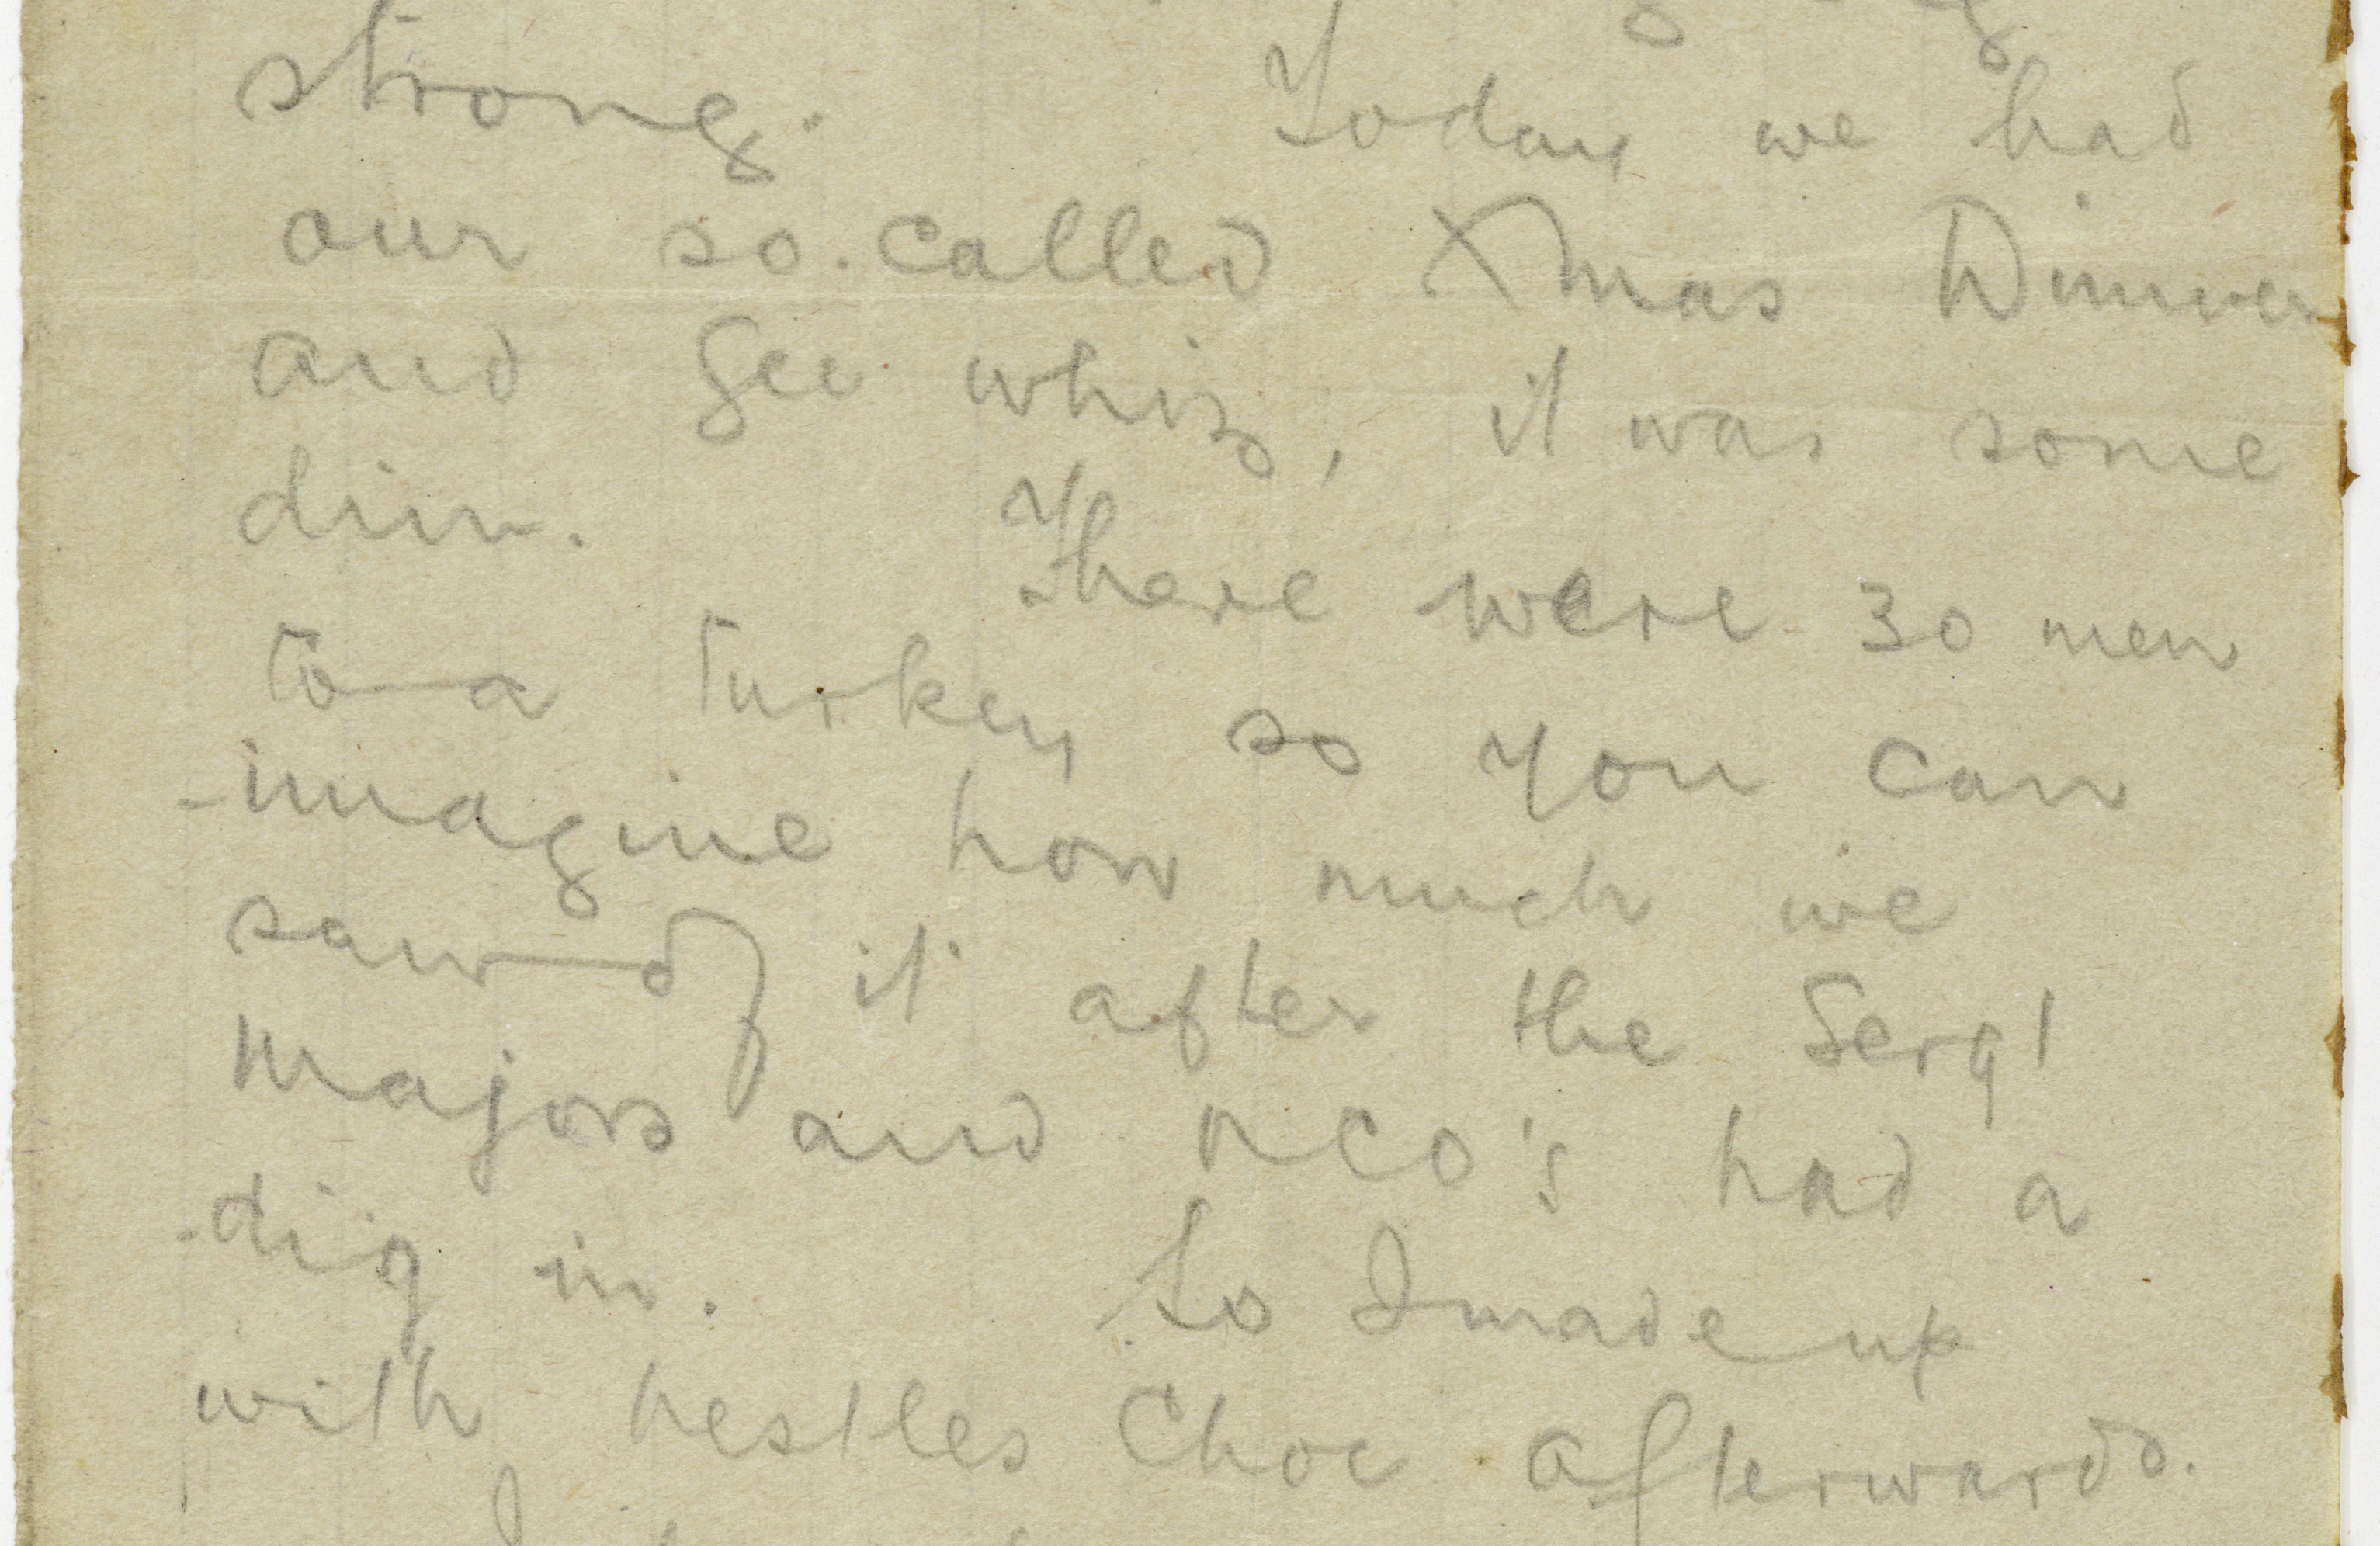 strong. Today we had
our so-called Xmas Dinner
and Gee whiz, it was some
din. There were 30 men
to a turkey so you can
imagine how much we
saw of it after the Sergt
Majors and NCO's had a
dig in. So I made up
with nestles Choc afterwards.